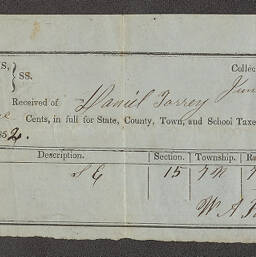 S, } ss. Collec
Received of Daniel Torrey
Cents, in full for State, County, Town, and School Taxe
852.
Description. Section. Township. Ra
S E 15 7 N 7
W. A.